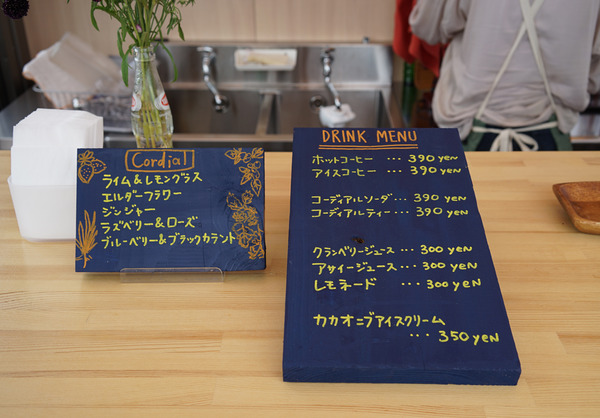 Cordial
ライム&レモングラス
エルダーフラワー
ジンジャー
ラズベリー&ローズ
ブルーベリー&ブラックカラント
DRINK MENU
ホットコーヒー ... 390 yen
アイスコーヒー ... 390 yen
コーディアルソーダ... 390 yen
コーディアルティー ... 390 yen
クランベリージュース ... 300 yen
アサイージュース ... 300 yen
レモネード ... 300 yen
カカオニブアイスクリーム
... 350 yen